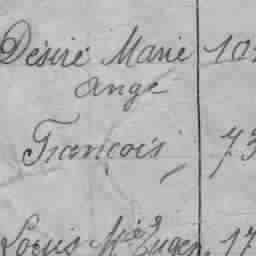 Désiré Marie 10
ange
François 73
Louis Mie Eugen 17